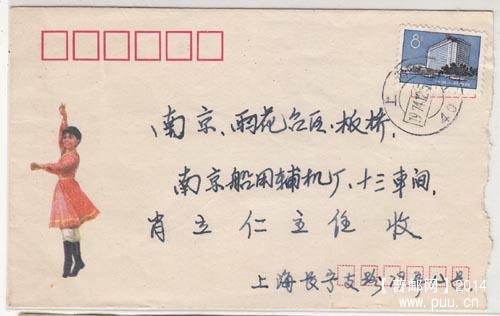 8分
上
南京、雨花台区、板桥、
南京船用辅机厂、十三车间、
肖立仁主任 收
上海长宁支路 号
【普邮网】2014
www.puu.cn